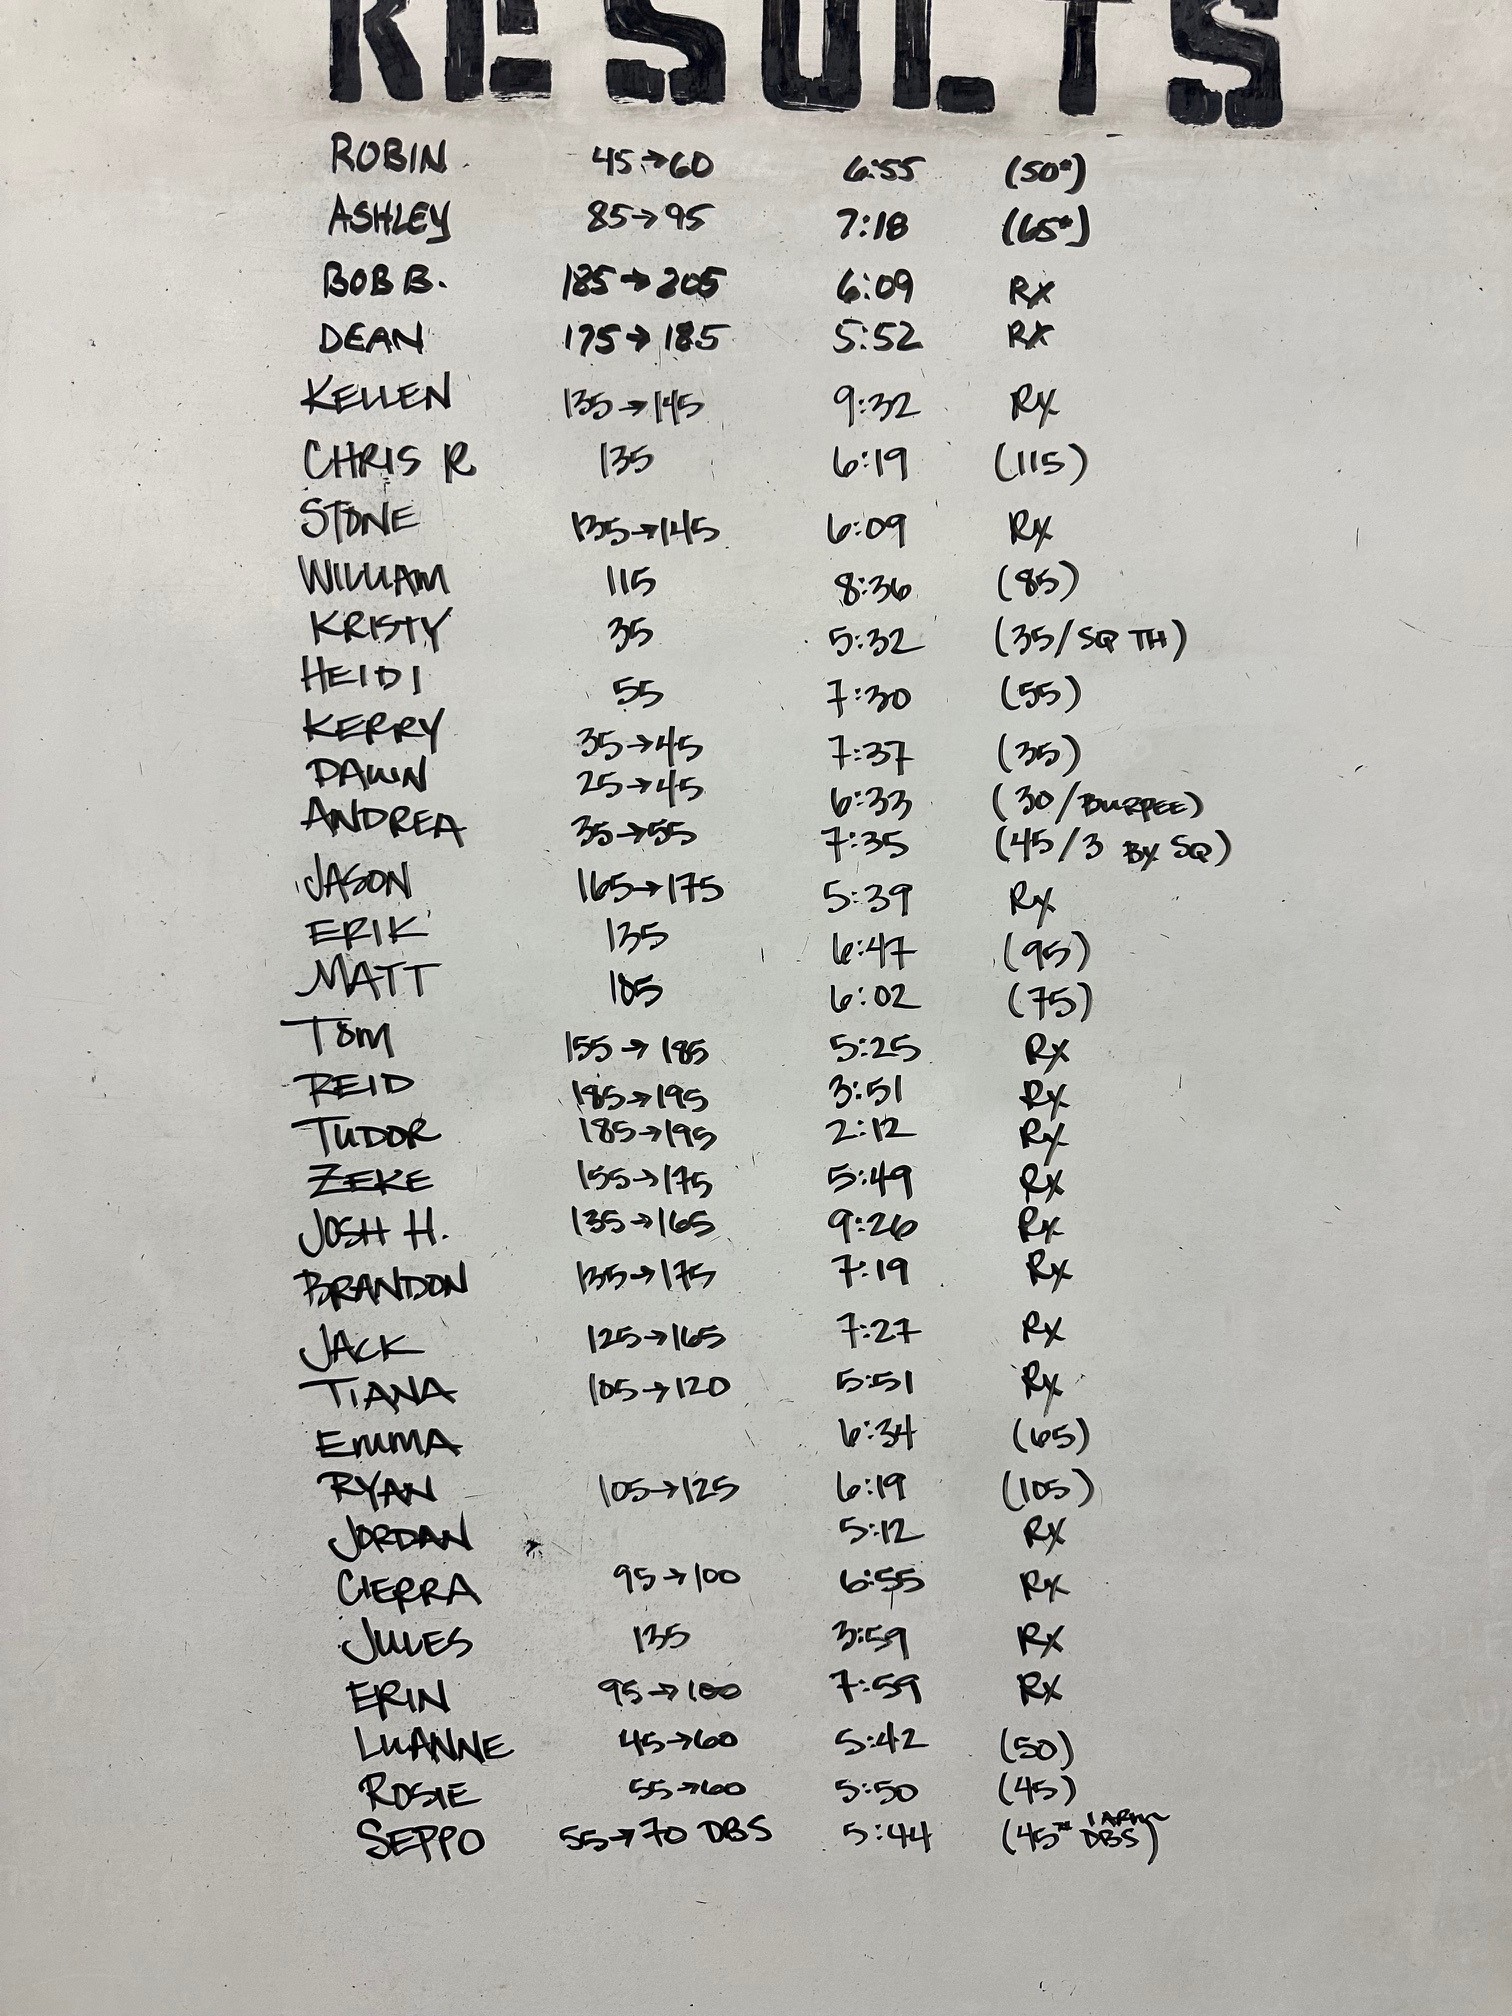 RESULTS
ROBIN 45→60 6:55 (50#)
ASHLEY 85→95 7:18 (65#)
BOB B. 185→205 6:09 Rx
DEAN 175→185 5:52 Rx
KELLEN 135→145 9:32 Rx
CHRIS R 135 6:19 (115)
STONE 135→145 6:09 Rx
WILLIAM 115 8:36 (85)
KRISTY 35 5:32 (35/SQ TH)
HEIDI 55 7:30 (55)
KERRY 35→45 7:37 (35)
DAWN 25→45 6:33 (30/BURPEE)
ANDREA 35→55 7:35 (45/3 BY SQ)
JASON 165→175 5:39 Rx
ERIK 135 6:47 (95)
MATT 185 6:02 (75)
TOM 155→185 5:25 Rx
REID 185→195 3:51 Rx
TUDOR 185→195 2:12 Rx
ZEKE 155→175 5:49 Rx
JOSH H. 135→165 9:26 Rx
BRANDON 135→175 7:19 Rx
JACK 125→165 7:27 Rx
TIANA 105→120 5:51 Rx
EMMA 6:34 (65)
RYAN 105→125 6:19 (105)
JORDAN 5:12 Rx
CIERRA 95→100 6:55 Rx
JULES 135 3:59 Rx
ERIN 95→100 7:59 Rx
LUANNE 45→60 5:42 (50)
ROSIE 55→60 5:50 (45)
SEPPO 55→70 DBS 5:44 (45# 1 ARM DBS)